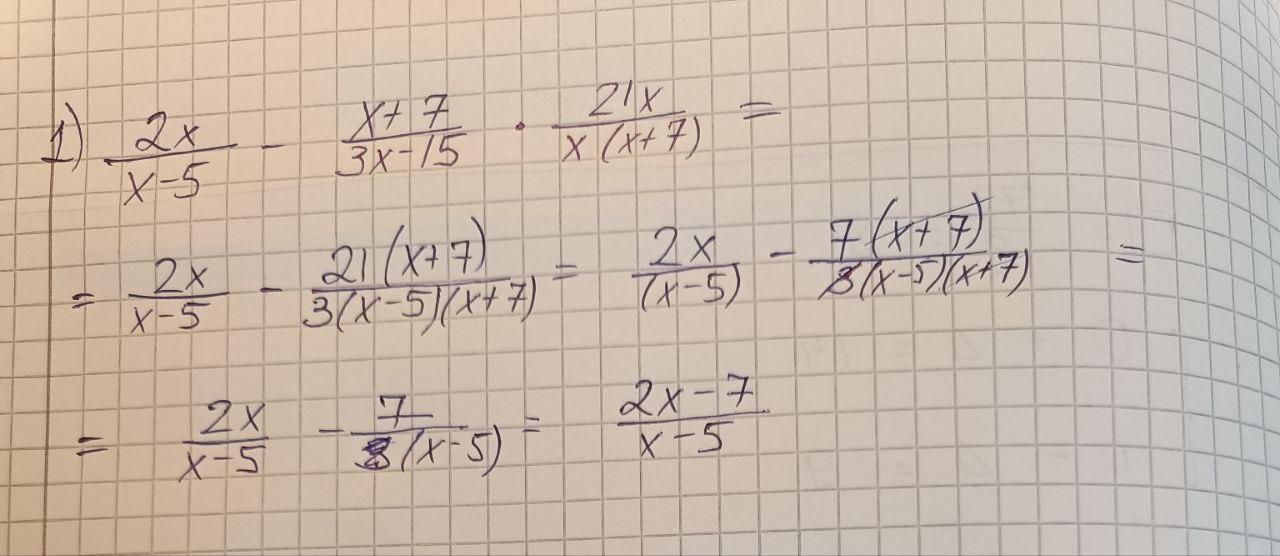 1) \frac{2x}{x-5} - \frac{x+7}{3x-15} · \frac{21x}{x(x+7)} =
= \frac{2x}{x-5} - \frac{21(x+7)}{3(x-5)(x+7)} = \frac{2x}{(x-5)} - \frac{7(x+7)}{3(x-5)(x+7)} =
= \frac{2x}{x-5} - \frac{7}{3(x-5)} = \frac{2x-7}{x-5}